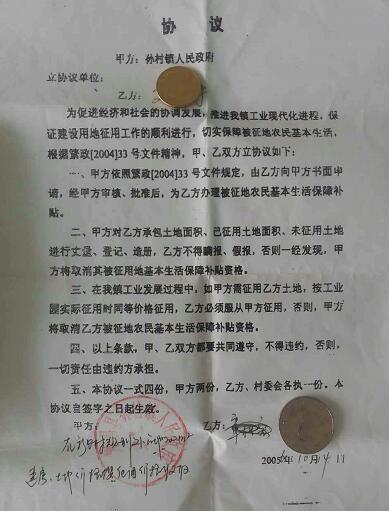 协 议
甲方：孙村镇人民政府
立协议单位：
乙方：
为促进经济和社会的协调发展，推进我镇工业现代化进程，保
证建设用地征用工作的顺利进行，切实保障被征地农民基本生活，
根据繁政[2004]33 号文件精神，甲、乙双方立协议如下：
一、甲方依照繁政[2004]33 号文件规定，由乙方向甲方书面申
请，经甲方审核、批准后，为乙方办理被征地农民基本生活保障补
贴。
二、甲方对乙方承包土地面积、已征用土地面积、未征用土地
进行丈量、登记、造册，乙方不得瞒报、假报，否则一经发现，甲
方将取消其被征用地基本生活保障补贴资格。
三、在我镇工业发展过程中，如甲方需征用乙方土地，按工业
园实际征用时同等价格征用，乙方必须服从甲方征用，否则，甲方
将取消乙方被征地农民基本生活保障补贴资格。
四、以上条款，甲、乙双方都要共同遵守，不得违约，否则，
一切责任由违约方承担。
五、本协议一式四份，甲方两份，乙方、村委会各执一份。本
协议自签字之日起生效。
甲方： 乙方：
2005年10月14日